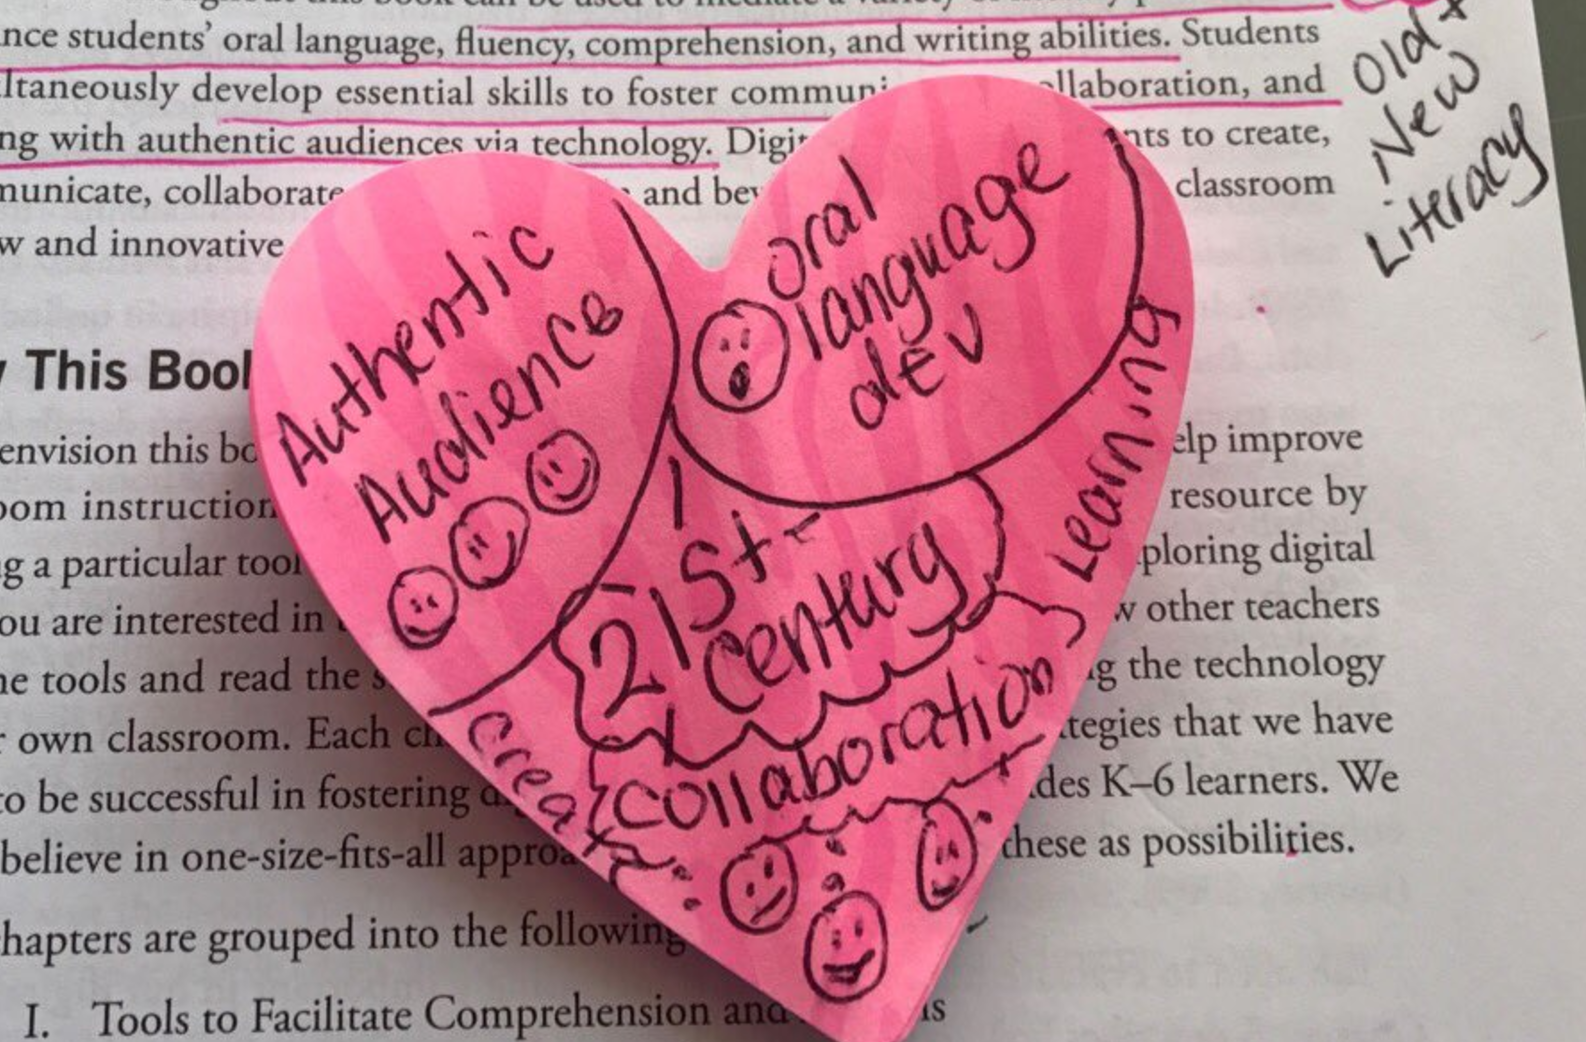 nce students' oral language, fluency, comprehension, and writing abilities. Students
ltaneously develop essential skills to foster communi llaboration, and
ng with authentic audiences via technology. Digit nts to create,
municate, collaborate and bey classroom
w and innovative
Old +
New
Literacy
This Book
envision this bo elp improve
oom instruction resource by
g a particular tool ploring digital
ou are interested in w other teachers
ne tools and read the s g the technology
r own classroom. Each ch tegies that we have
to be successful in fostering des K–6 learners. We
believe in one-size-fits-all approa these as possibilities.
hapters are grouped into the following
I. Tools to Facilitate Comprehension and is
Authentic
Audience
oral
language
dev
21st-
century
Learning
collaboration
create